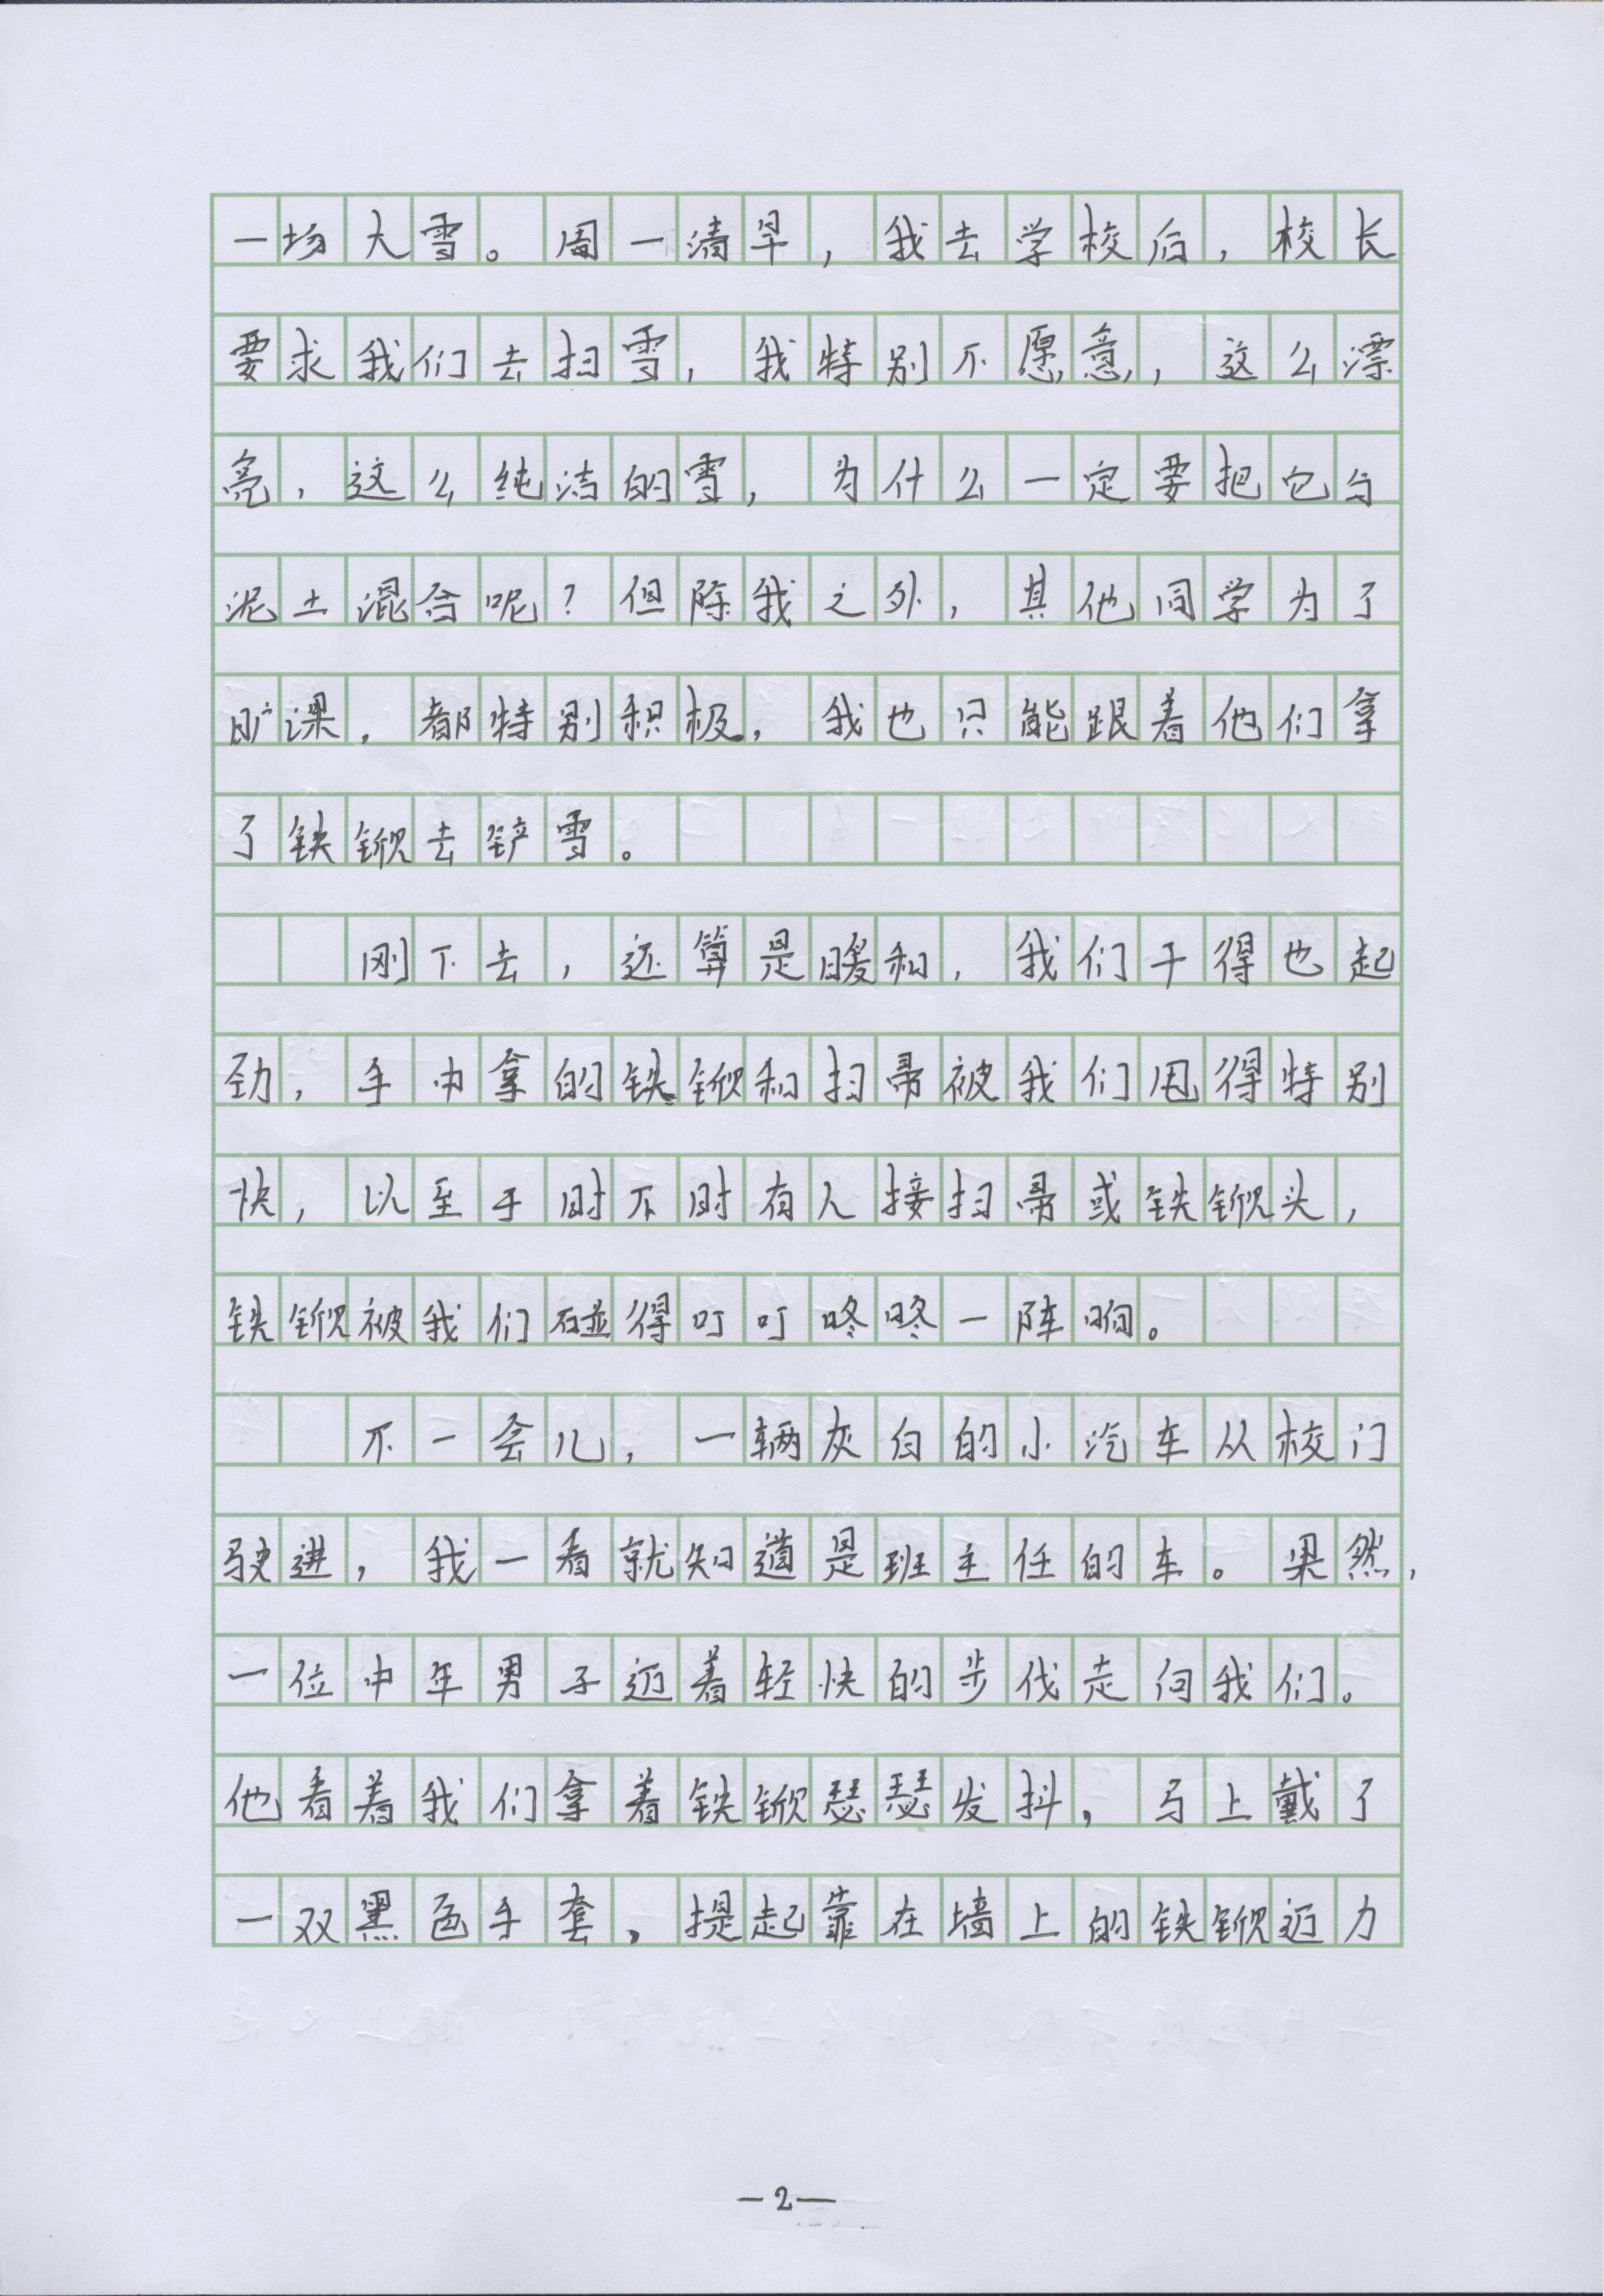 一场大雪。周一清早，我去学校后，校长
要求我们去扫雪，我特别不愿意，这么漂
亮，这么纯洁的雪，为什么一定要把它与
泥土混合呢？但除我之外，其他同学为了
旷课，都特别积极，我也只能跟着他们拿
了铁锨去铲雪。
刚下去，还算是暖和，我们干得也起
劲，手中拿的铁锨和扫帚被我们甩得特别
快，以至于时不时有人接扫帚或铁锨头，
铁锨被我们碰得叮叮咚咚一阵响。
不一会儿，一辆灰白的小汽车从校门
驶进，我一看就知道是班主任的车。果然，
一位中年男子迈着轻快的步伐走向我们。
他看着我们拿着铁锨瑟瑟发抖，马上戴了
一双黑色手套，提起靠在墙上的铁锨迈力
—2—